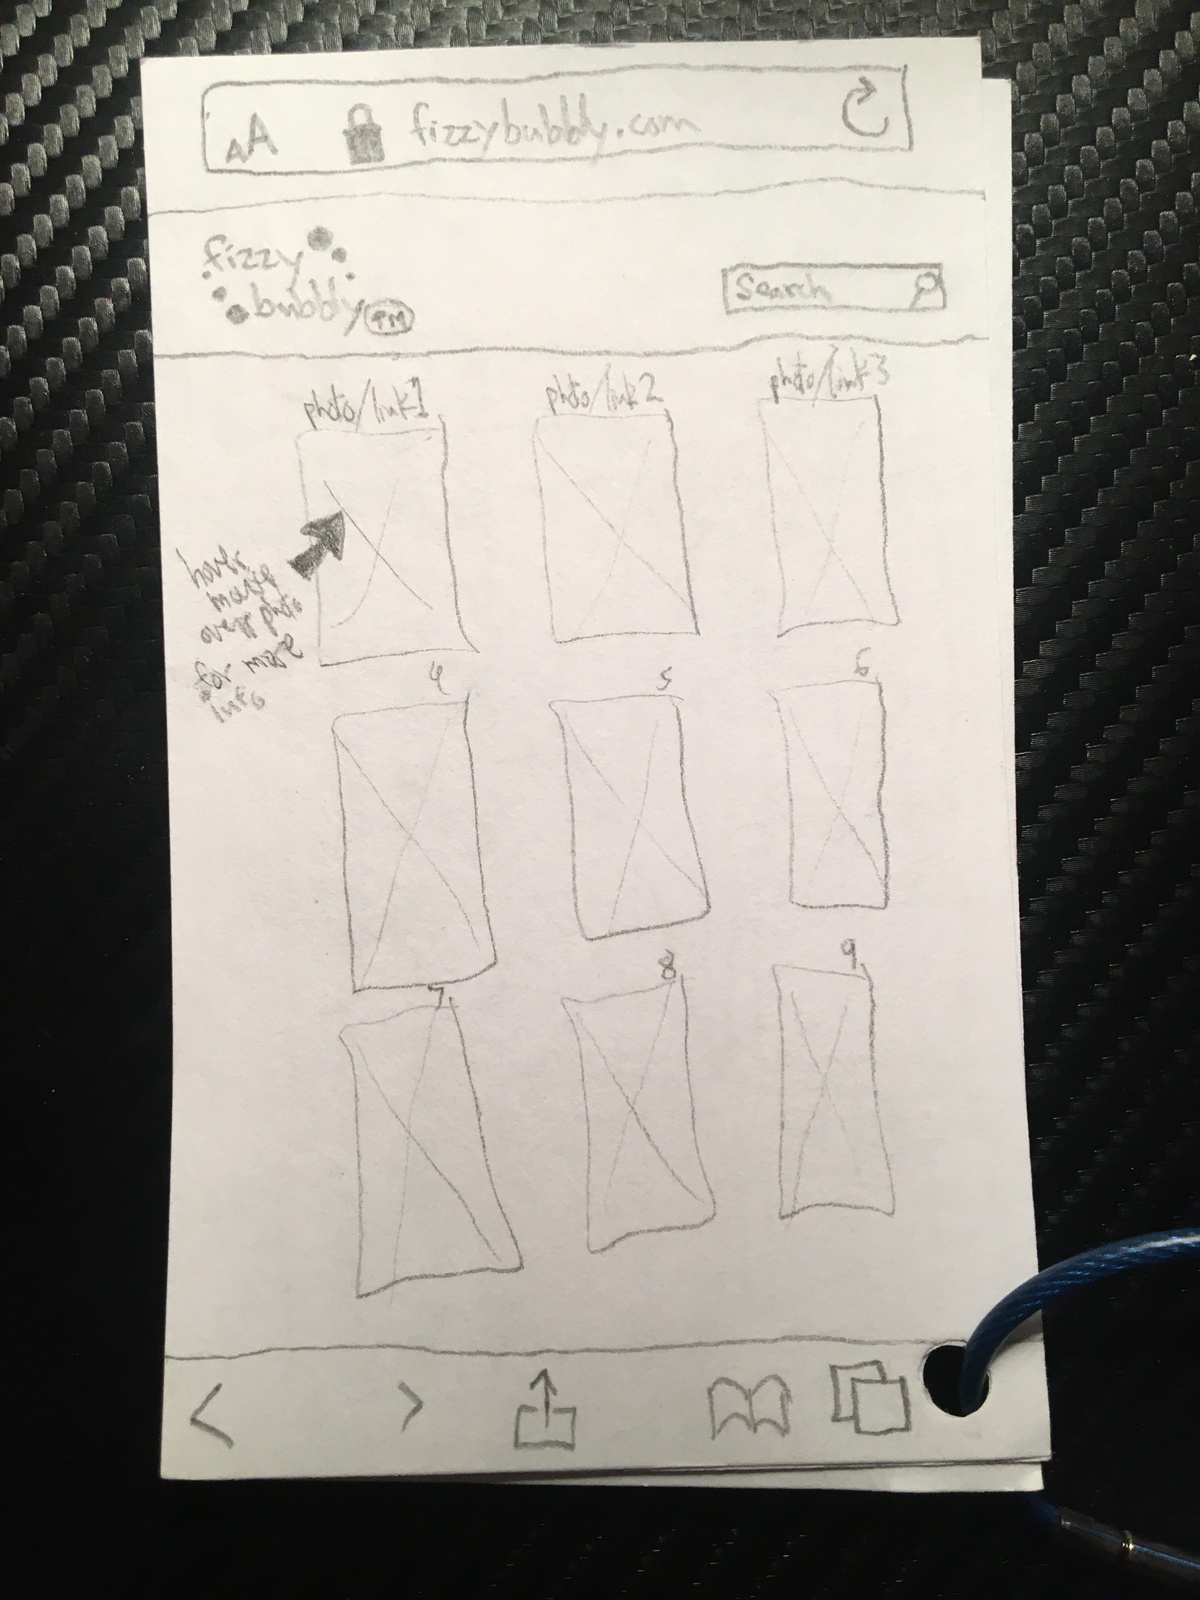 AA fizzybubbly.com
fizzy
bubbly TM
Search
photo/link1 photo/link2 photo/link3
hover
mouse
over photo
for more
info
4 5 6
7 8 9